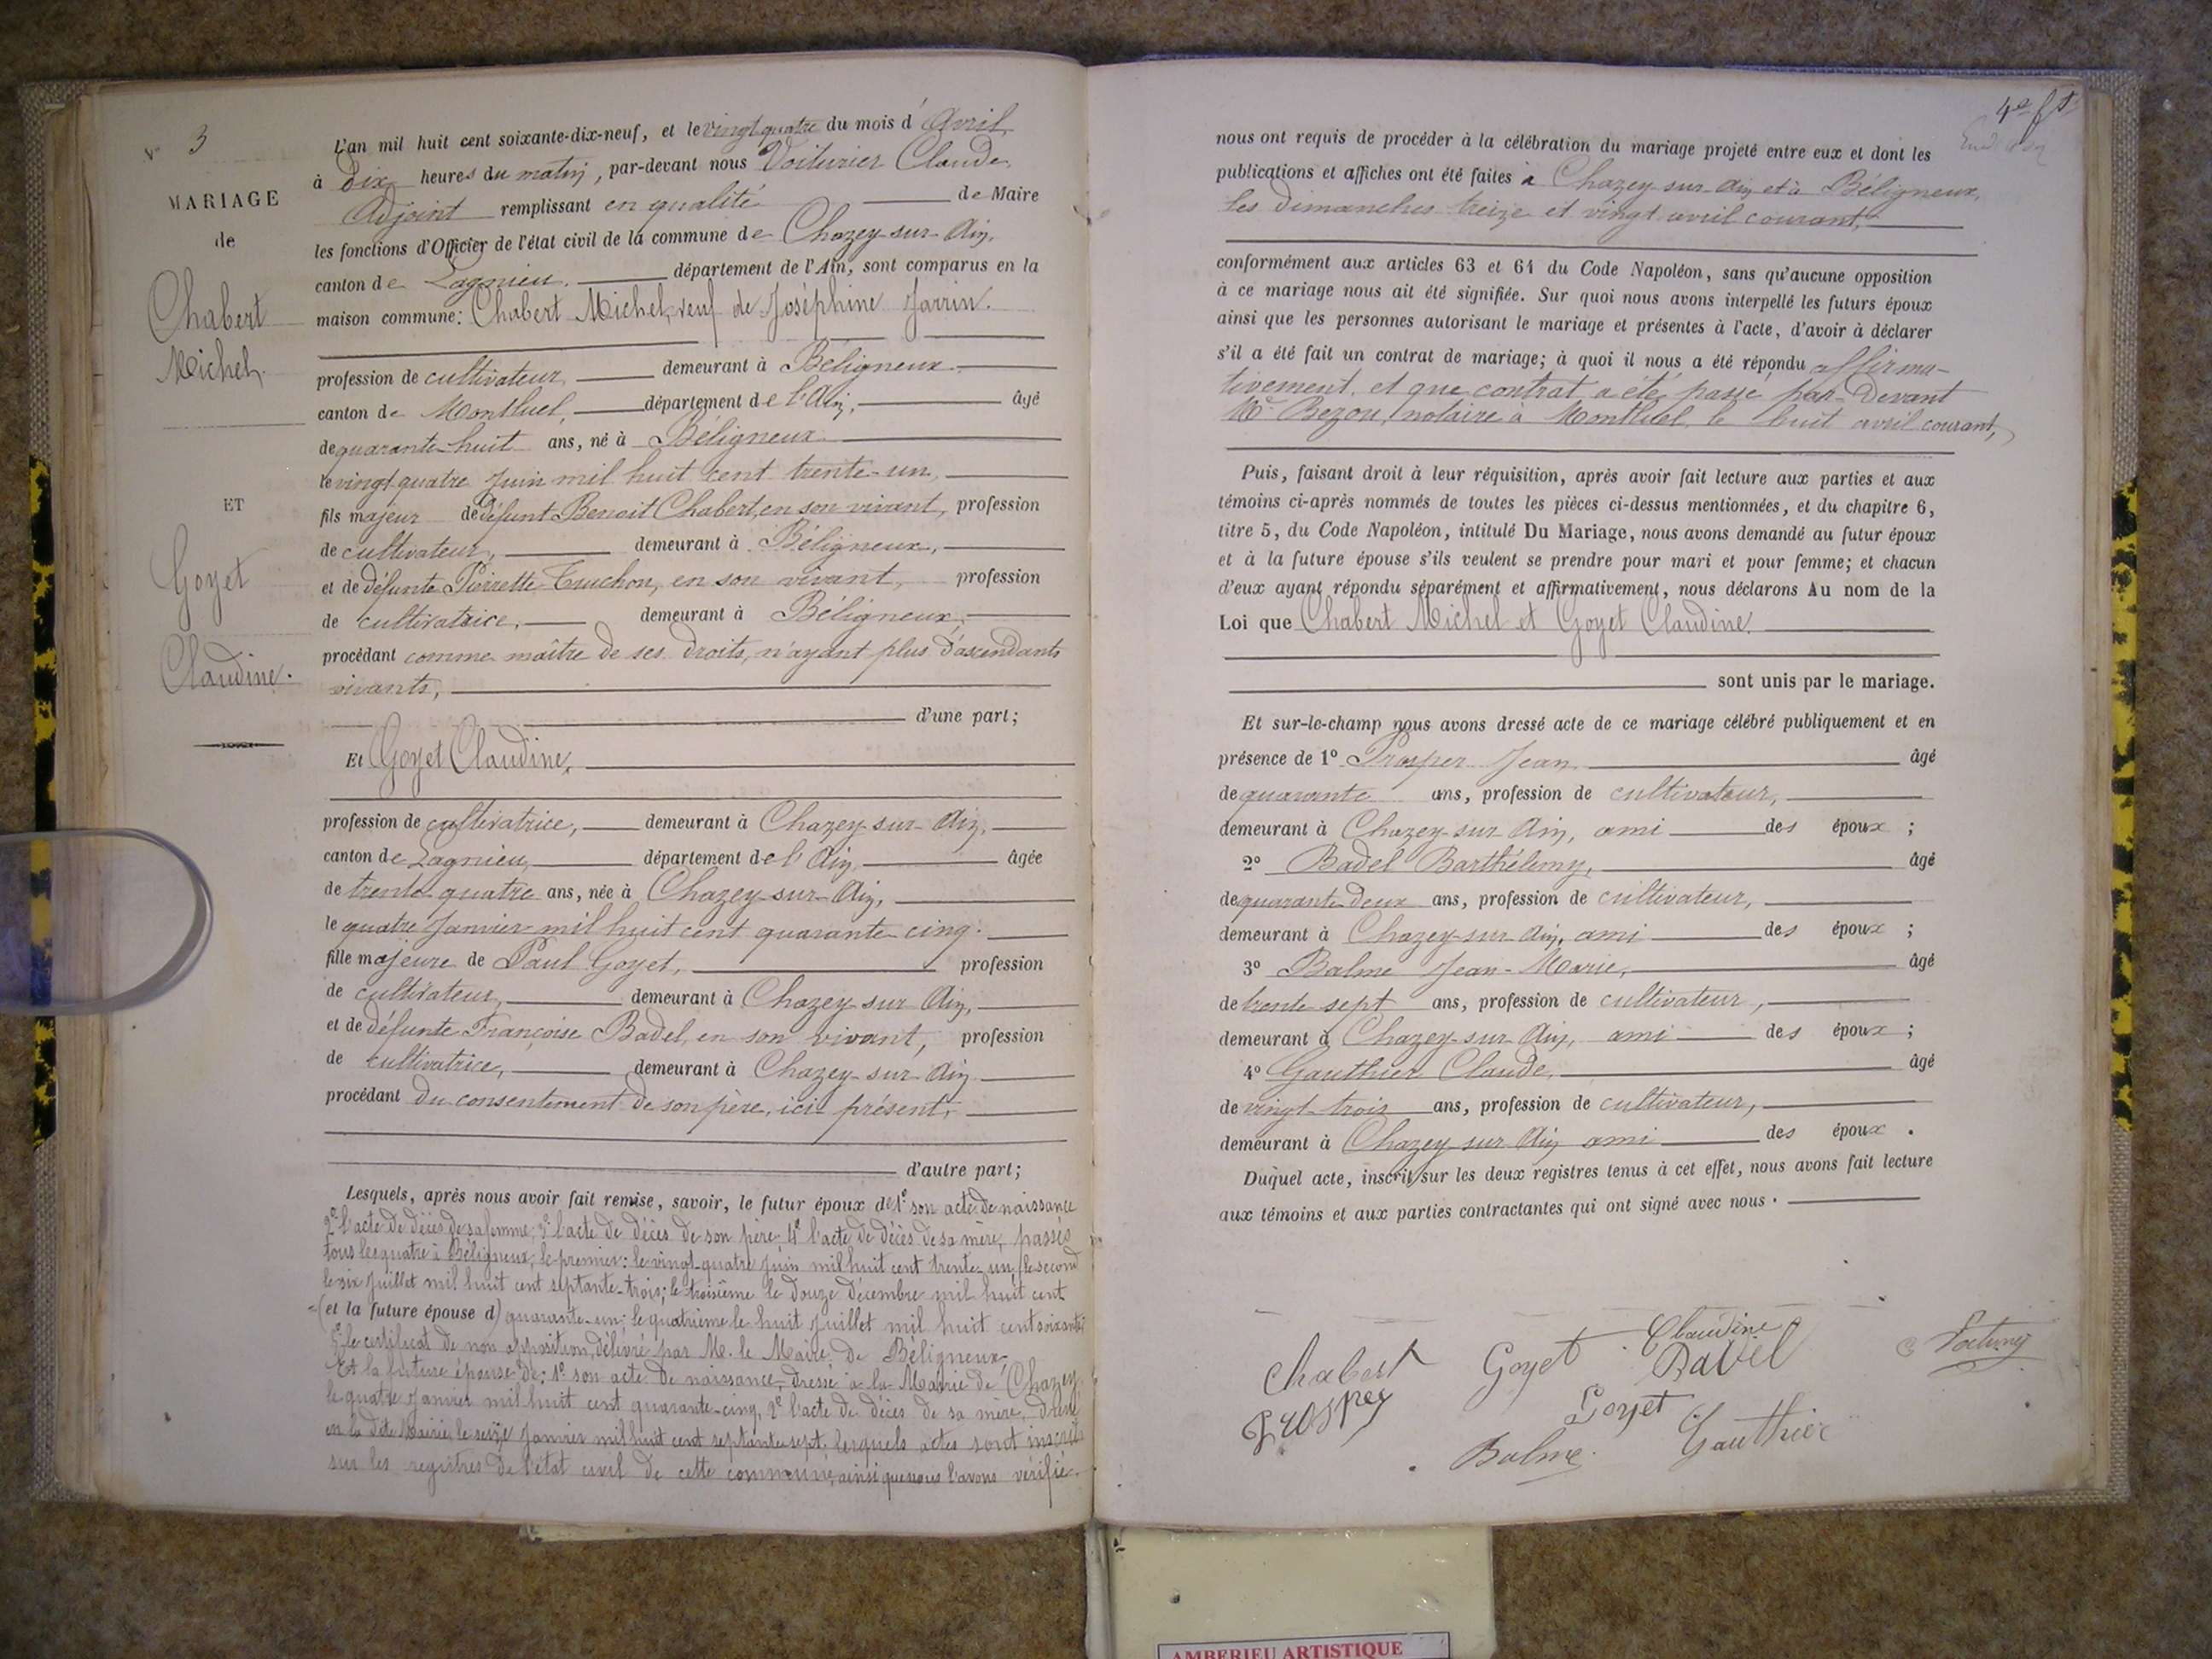 N° 3
MARIAGE
de
Chabert
Michel.
ET
Goyet
Claudine.
L'an mil huit cent soixante-dix-neuf, et le vingt quatre du mois d'Avril
à Dix heures du matin, par-devant nous Voiturier Claude
Adjoint remplissant en qualité de Maire
les fonctions d'Officier de l'état civil de la commune de Chazey-sur-Ain,
canton de Lagnieu. département de l'Ain, sont comparus en la
maison commune: Chabert Michel, veuf de Joséphine Jarrin.
profession de cultivateur, demeurant à Béligneux
canton de Montluel, département de l'Ain, âgé
de quarante-huit ans, né à Béligneux
le vingt quatre Juin mil huit cent trente-un,
fils majeur de défunt Benoit Chabert, en son vivant, profession
de cultivateur, demeurant à Béligneux,
et de défunte Pierrette Truchon, en son vivant, profession
de cultivatrice, demeurant à Béligneux,
procédant comme maître de ses droits, n'ayant plus d'ascendants
vivants,
d'une part;
Et Goyet Claudine,
profession de cultivatrice, demeurant à Chazey-sur-Ain,
canton de Lagnieu, département de l'Ain, âgée
de trente quatre ans, née à Chazey-sur-Ain,
le quatre Janvier mil huit cent quarante-cinq.
fille majeure de Paul Goyet, profession
de cultivateur, demeurant à Chazey-sur-Ain,
et de défunte Françoise Badel, en son vivant, profession
de cultivatrice, demeurant à Chazey-sur-Ain
procédant du consentement de son père, ici présent,
d'autre part;
Lesquels, après nous avoir fait remise, savoir, le futur époux de 1° son acte de naissance
2° l'acte de décès de sa femme, 3° l'acte de décès de son père, 4° l'acte de décès de sa mère, passés
tous les quatre à Béligneux, le premier: le vingt-quatre Juin mil huit cent trente-un, le second
le six Juillet mil huit cent septante-trois; le troisième le douze Décembre mil huit cent
(et la future épouse d) quarante-un; le quatrième le huit Juillet mil huit cent soixante
5° le certificat de non opposition, délivré par M. le Maire de Béligneux,
Et la future épouse de: 1° son acte de naissance, dressé à la Mairie de Chazey
le quatre Janvier mil huit cent quarante-cinq, 2° l'acte de décès de sa mère, dressé
en la dite Mairie, le seize Janvier mil huit cent septante sept, lesquels actes sont inscrits
sur les registres de l'état civil de cette commune, ainsi que nous l'avons vérifié.
nous ont requis de procéder à la célébration du mariage projeté entre eux et dont les
publications et affiches ont été faites à Chazey-sur-Ain et à Béligneux,
les Dimanches treize et vingt avril courant,
conformément aux articles 63 et 64 du Code Napoléon, sans qu'aucune opposition
à ce mariage nous ait été signifiée. Sur quoi nous avons interpellé les futurs époux
ainsi que les personnes autorisant le mariage et présentes à l'acte, d'avoir à déclarer
s'il a été fait un contrat de mariage; à quoi il nous a été répondu affirma-
tivement, et que contrat a été passé par-devant
Me Bezou, notaire à Montluel, le huit avril courant,
Puis, faisant droit à leur réquisition, après avoir fait lecture aux parties et aux
témoins ci-après nommés de toutes les pièces ci-dessus mentionnées, et du chapitre 6,
titre 5, du Code Napoléon, intitulé Du Mariage, nous avons demandé au futur époux
et à la future épouse s'ils veulent se prendre pour mari et pour femme; et chacun
d'eux ayant répondu séparément et affirmativement, nous déclarons Au nom de la
Loi que Chabert Michel et Goyet Claudine.
sont unis par le mariage.
Et sur-le-champ nous avons dressé acte de ce mariage célébré publiquement et en
présence de 1° Prosper Jean âgé
de quarante ans, profession de cultivateur,
demeurant à Chazey-sur-Ain, ami des époux;
2° Badel Barthélemy, âgé
de quarante deux ans, profession de cultivateur,
demeurant à Chazey-sur-Ain, ami des époux;
3° Balme Jean-Marie, âgé
de trente sept ans, profession de cultivateur,
demeurant à Chazey-sur-Ain, ami des époux;
4° Gauthier Claude, âgé
de vingt-trois ans, profession de cultivateur,
demeurant à Chazey-sur-Ain ami des époux.
Duquel acte, inscrit sur les deux registres tenus à cet effet, nous avons fait lecture
aux témoins et aux parties contractantes qui ont signé avec nous.
Chabert Goyet Claudine
Badel
Prosper Goyet
Balme Gauthier
AMBERIEU ARTISTIQUE